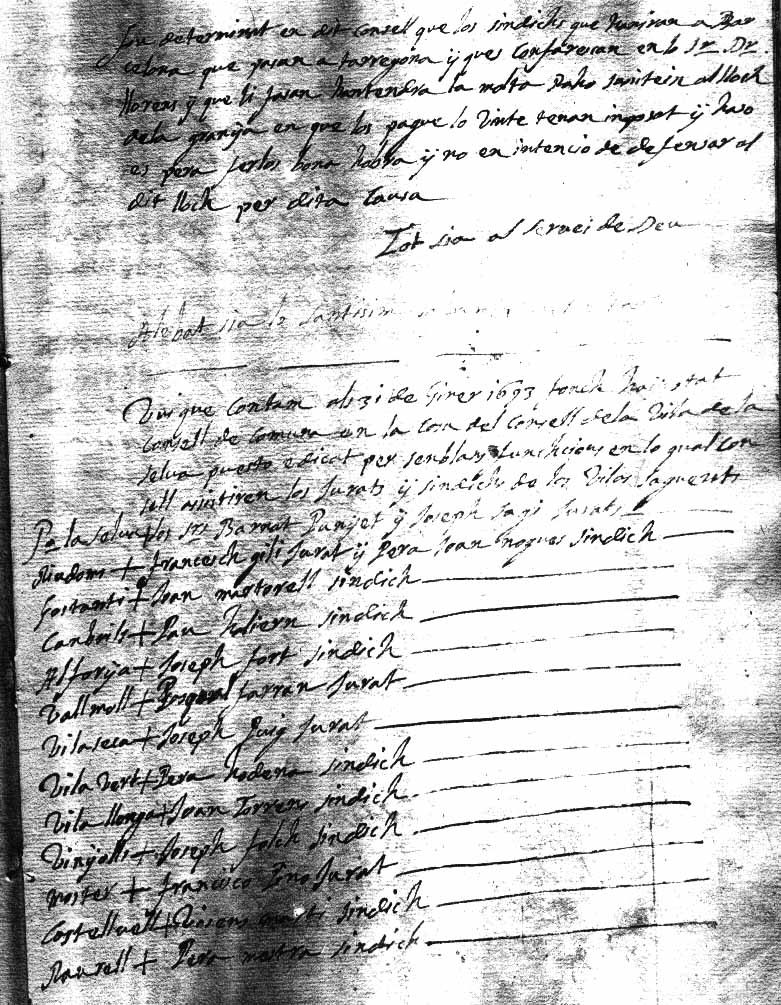 fou determinat en dit Consell que los sindichs que hauiran a Bar
celona que pasan a tarregona ÿ ques Confaresan en lo Sr Dr
llorens ÿ que li fasan hantendra la molta Raho tanitein al lloch
dela granÿa en que los pague lo Vinte tenan inposat ÿ haxo
es pera ferlos bona hobra ÿ no en intencio de defensar al
dit lloch per dita Causa
Tot sia al seruei de Deu
Alebat sia lo santisim
Vui que Contam als 31 de Giner 1693 fonch haiustat
Consell de Comuna en la Casa del Consell dela Vila de la
selua puesto edicat per senblans funchcions en lo qual con
sell asistiren los Jurats ÿ sindichs de los Vilas saguents
Po la selua + los srs Barnat Punÿet ÿ Joseph sagi Jurats
Riudoms + francesch gili Jurat ÿ Pera Joan nogues sindich
Costanti + Joan martorell sindich
Canbrils + Pau holiern sindich
Alforÿa + Joseph fort sindich
Vallmoll + farran Jurat
Vilaseca + Joseph Puig Jurat
Vila Vert + Pera hodena sindich
Vila llonga + Joan Torrens sindich
Vinÿolls + Joseph folch sindich
Moster + francisco Pino Jurat
Costellvell + Visens marti sindich
Raurell + Pera mestra sindich